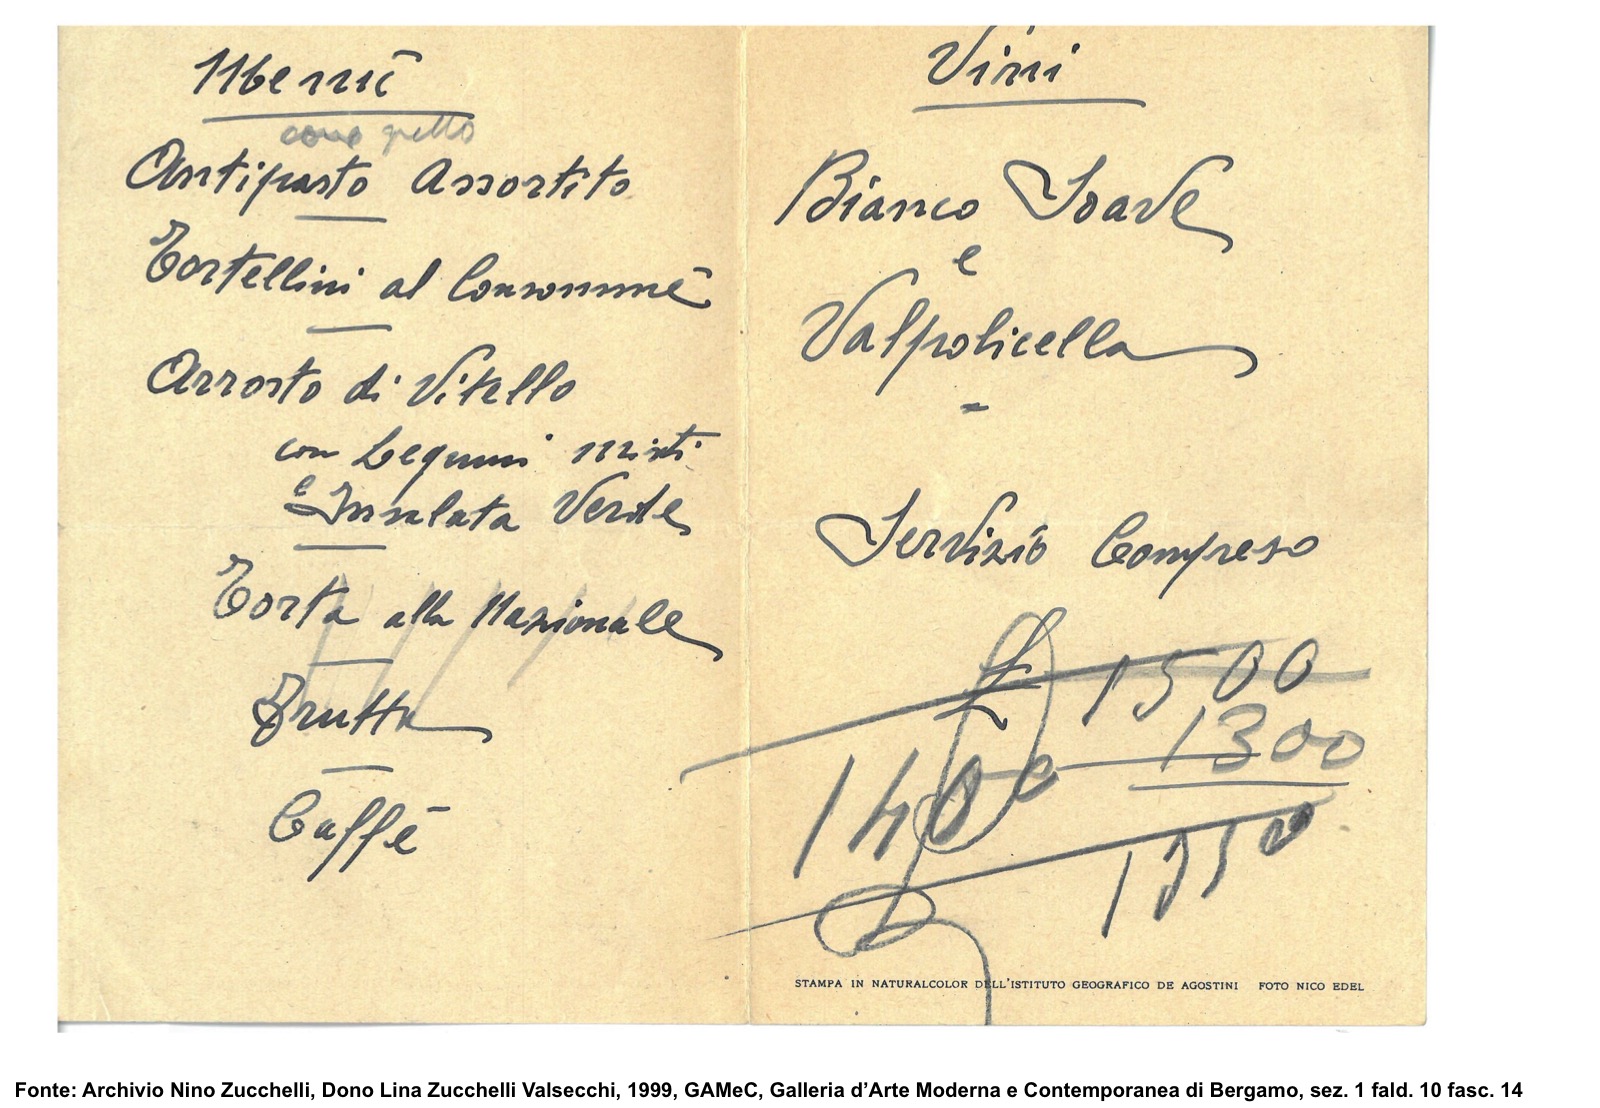 Menù
come quello
Antipasto Assortito
Tortellini al Consommè
Arrosto di Vitello
con Legumi misti
e Insalata Verde
Torta alla Nazionale
Frutta
Caffè
Vini
Bianco Soave
e
Valpolicella
Servizio Compreso
£ 1500
1300
1400
1350
STAMPA IN NATURALCOLOR DELL'ISTITUTO GEOGRAFICO DE AGOSTINI FOTO NICO EDEL
Fonte: Archivio Nino Zucchelli, Dono Lina Zucchelli Valsecchi, 1999, GAMeC, Galleria d’Arte Moderna e Contemporanea di Bergamo, sez. 1 fald. 10 fasc. 14